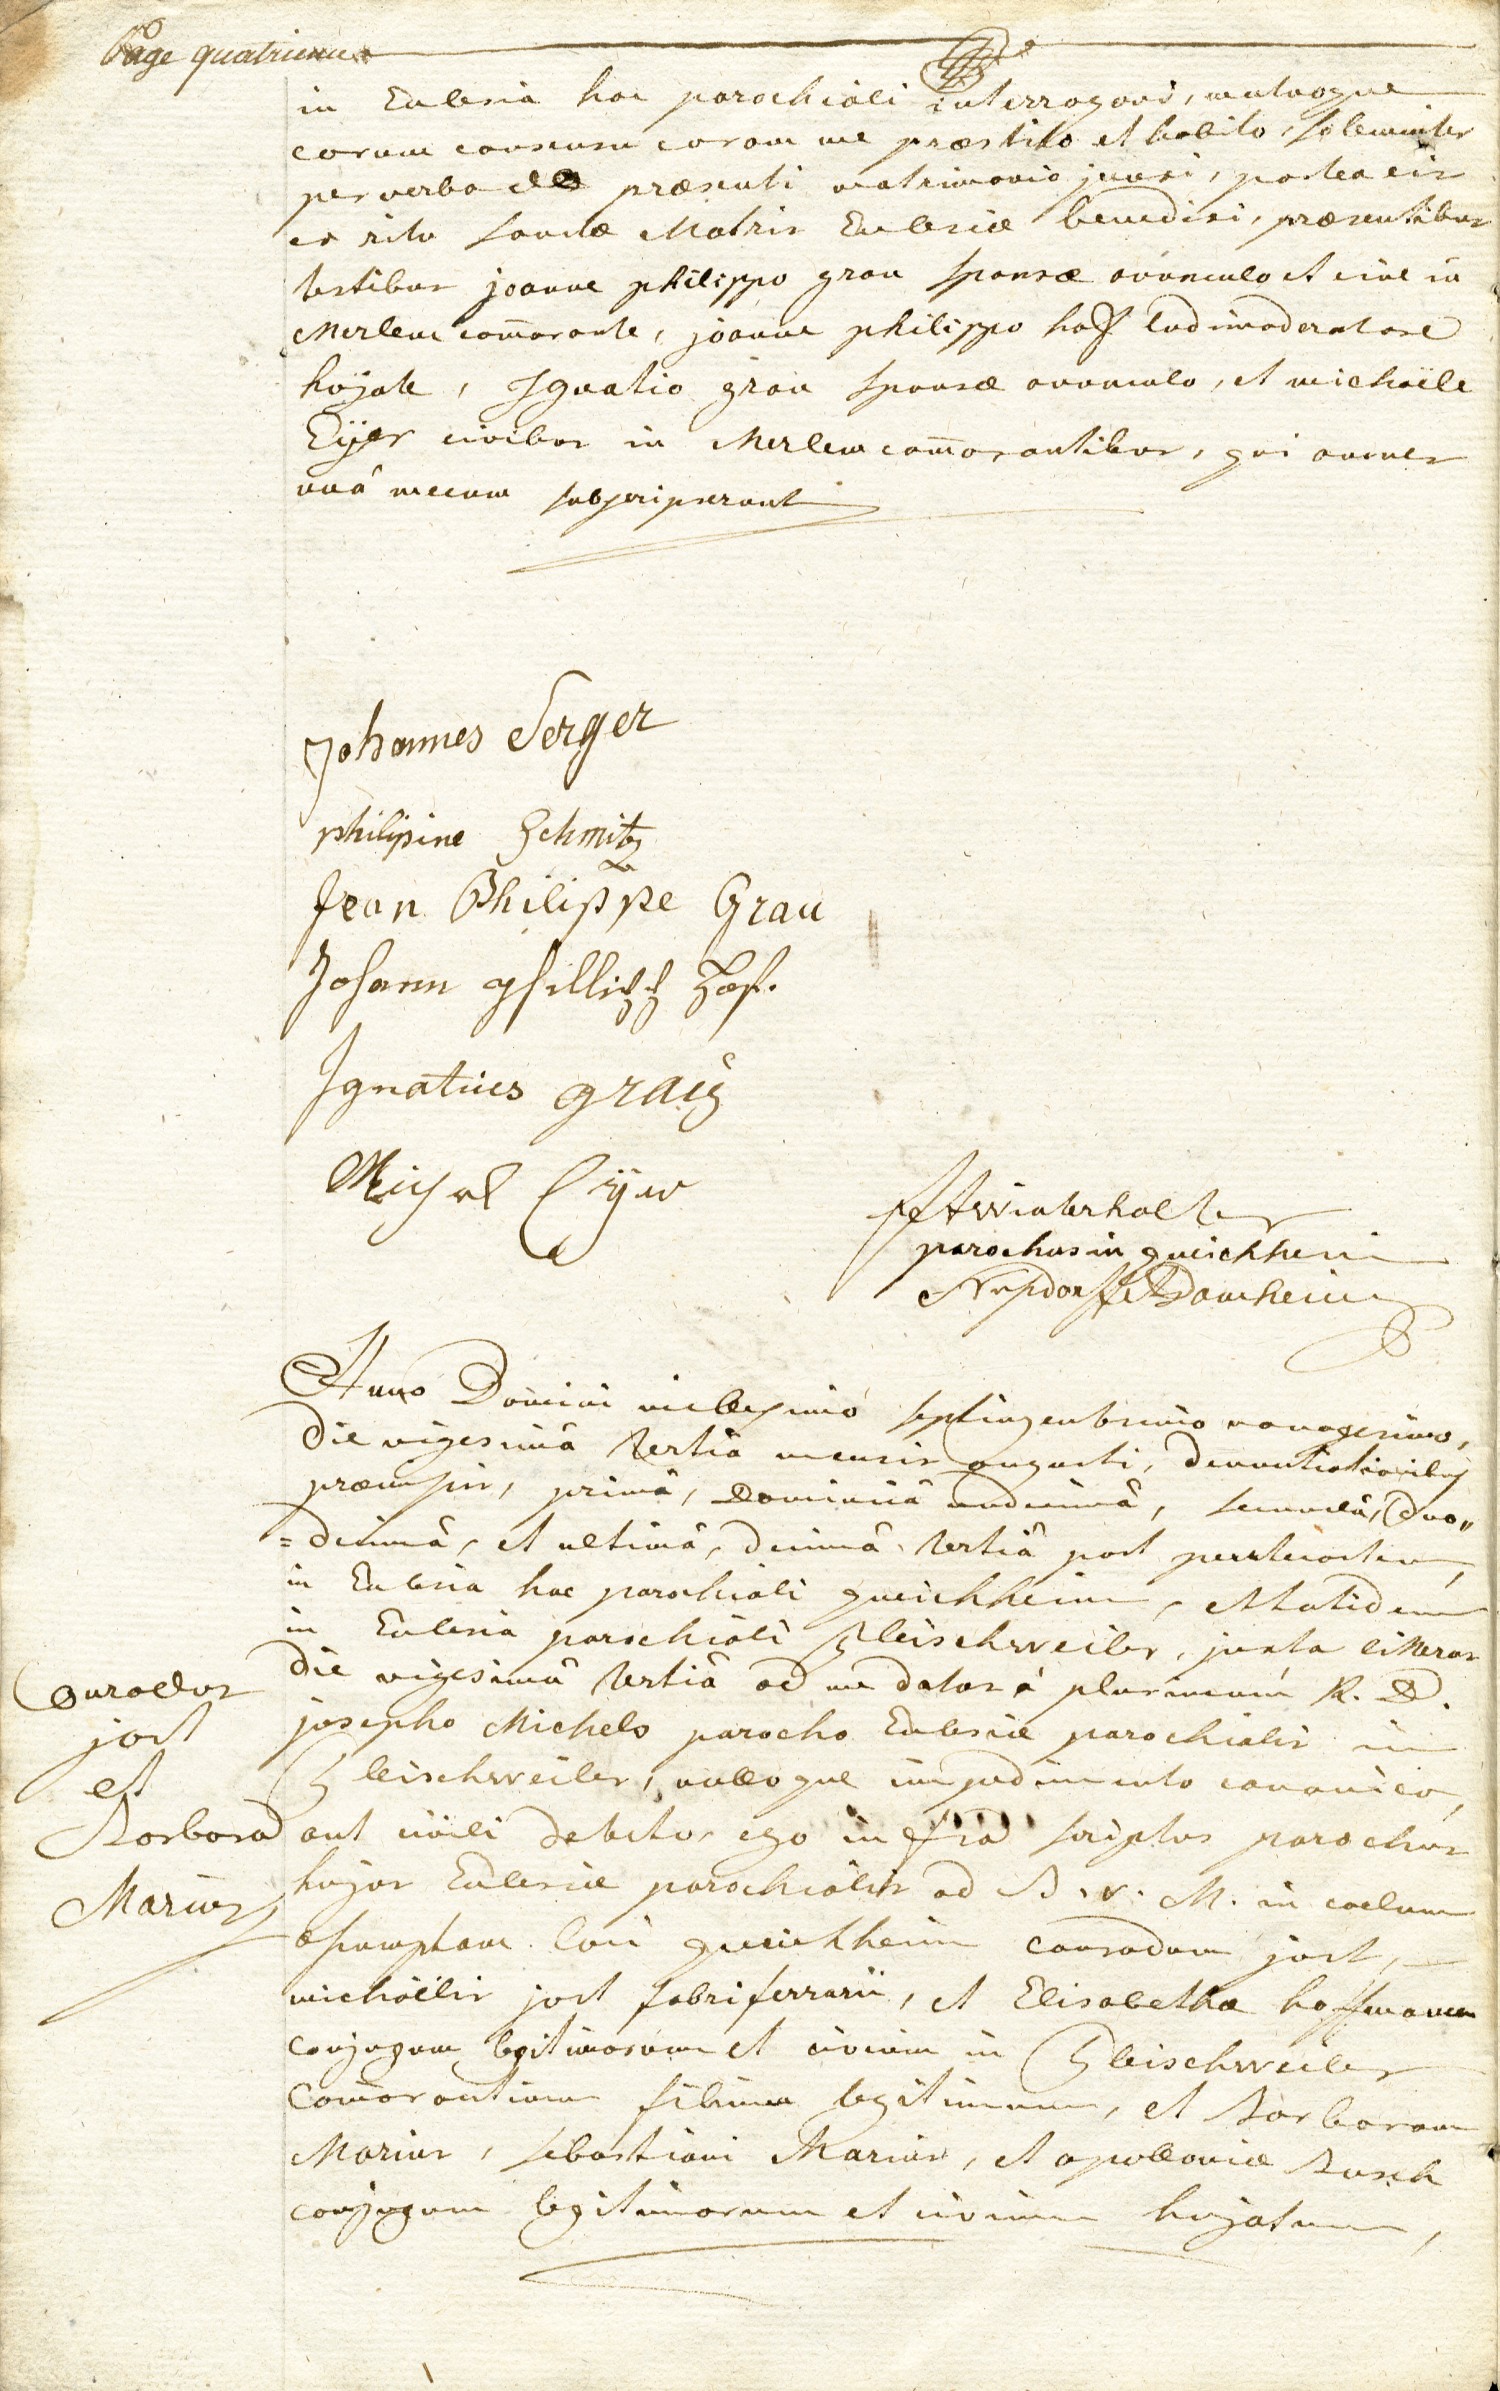 Page quatrieme
in Ecclesia hac parochiali interrogavi, mutuoque
eorum consensu coram me præstito et habito, solemniter
per verba de præsenti matrimonio junxi, postea eis
ex ritu sanctæ Matris Ecclesiæ benedixi, præsentibus
testibus joanne philippo grau sponsæ avunculo et cive in
Merlem com̄orante, joanne philippo hass ludimoderatore
hujate, Ignatio grau sponsæ avunculo, et michaële
Eÿer civibus in Merlem com̄orantibus, qui omnes
unâ mecum subscripserunt
Johannes Serger
philipine Schmitz
Jean Philippe Grau
Johann Phillipp
Ignatius grau
Michael Eÿer
Winterhalter
parochus in queichheim
Nusdorf et Damheim
Anno Domini millesimo septingentesimo nonagesimo,
die vigesimâ tertiâ mensis augusti, denuntiationibus
præmissis, primâ, Dominicâ undecimâ, secundâ, duo„
=decimâ, et ultimâ, decimâ tertiâ post pentecosten,
in Ecclesia hac parochiali queichheim, et totidem
in Ecclesia parochiali Gleischweiler, juxta litteras
die vigesimâ tertiâ ad me datas à plurimum R. D.
josepho Michels parocho Ecclesiæ parochialis in
Gleischweiler, nulloque impedimento canonico,
aut civili detecto, ego infra scriptus parochus
hujus Ecclesiæ parochialis ad B. V. M. in coelum
assumptam loci queichheim conradum jost,
michaëlis jost fabri ferrarii, et Elisabetha hoffmannin
conjugum legitimorum et civium in Gleischweiler
com̄orantium filium legitimum, et Barbaram
Marius, sebastiani Marius, et apolloniæ Busch
conjugum legitimorum et civium hujatum,
Conradus
jost
et
Barbara
Marius